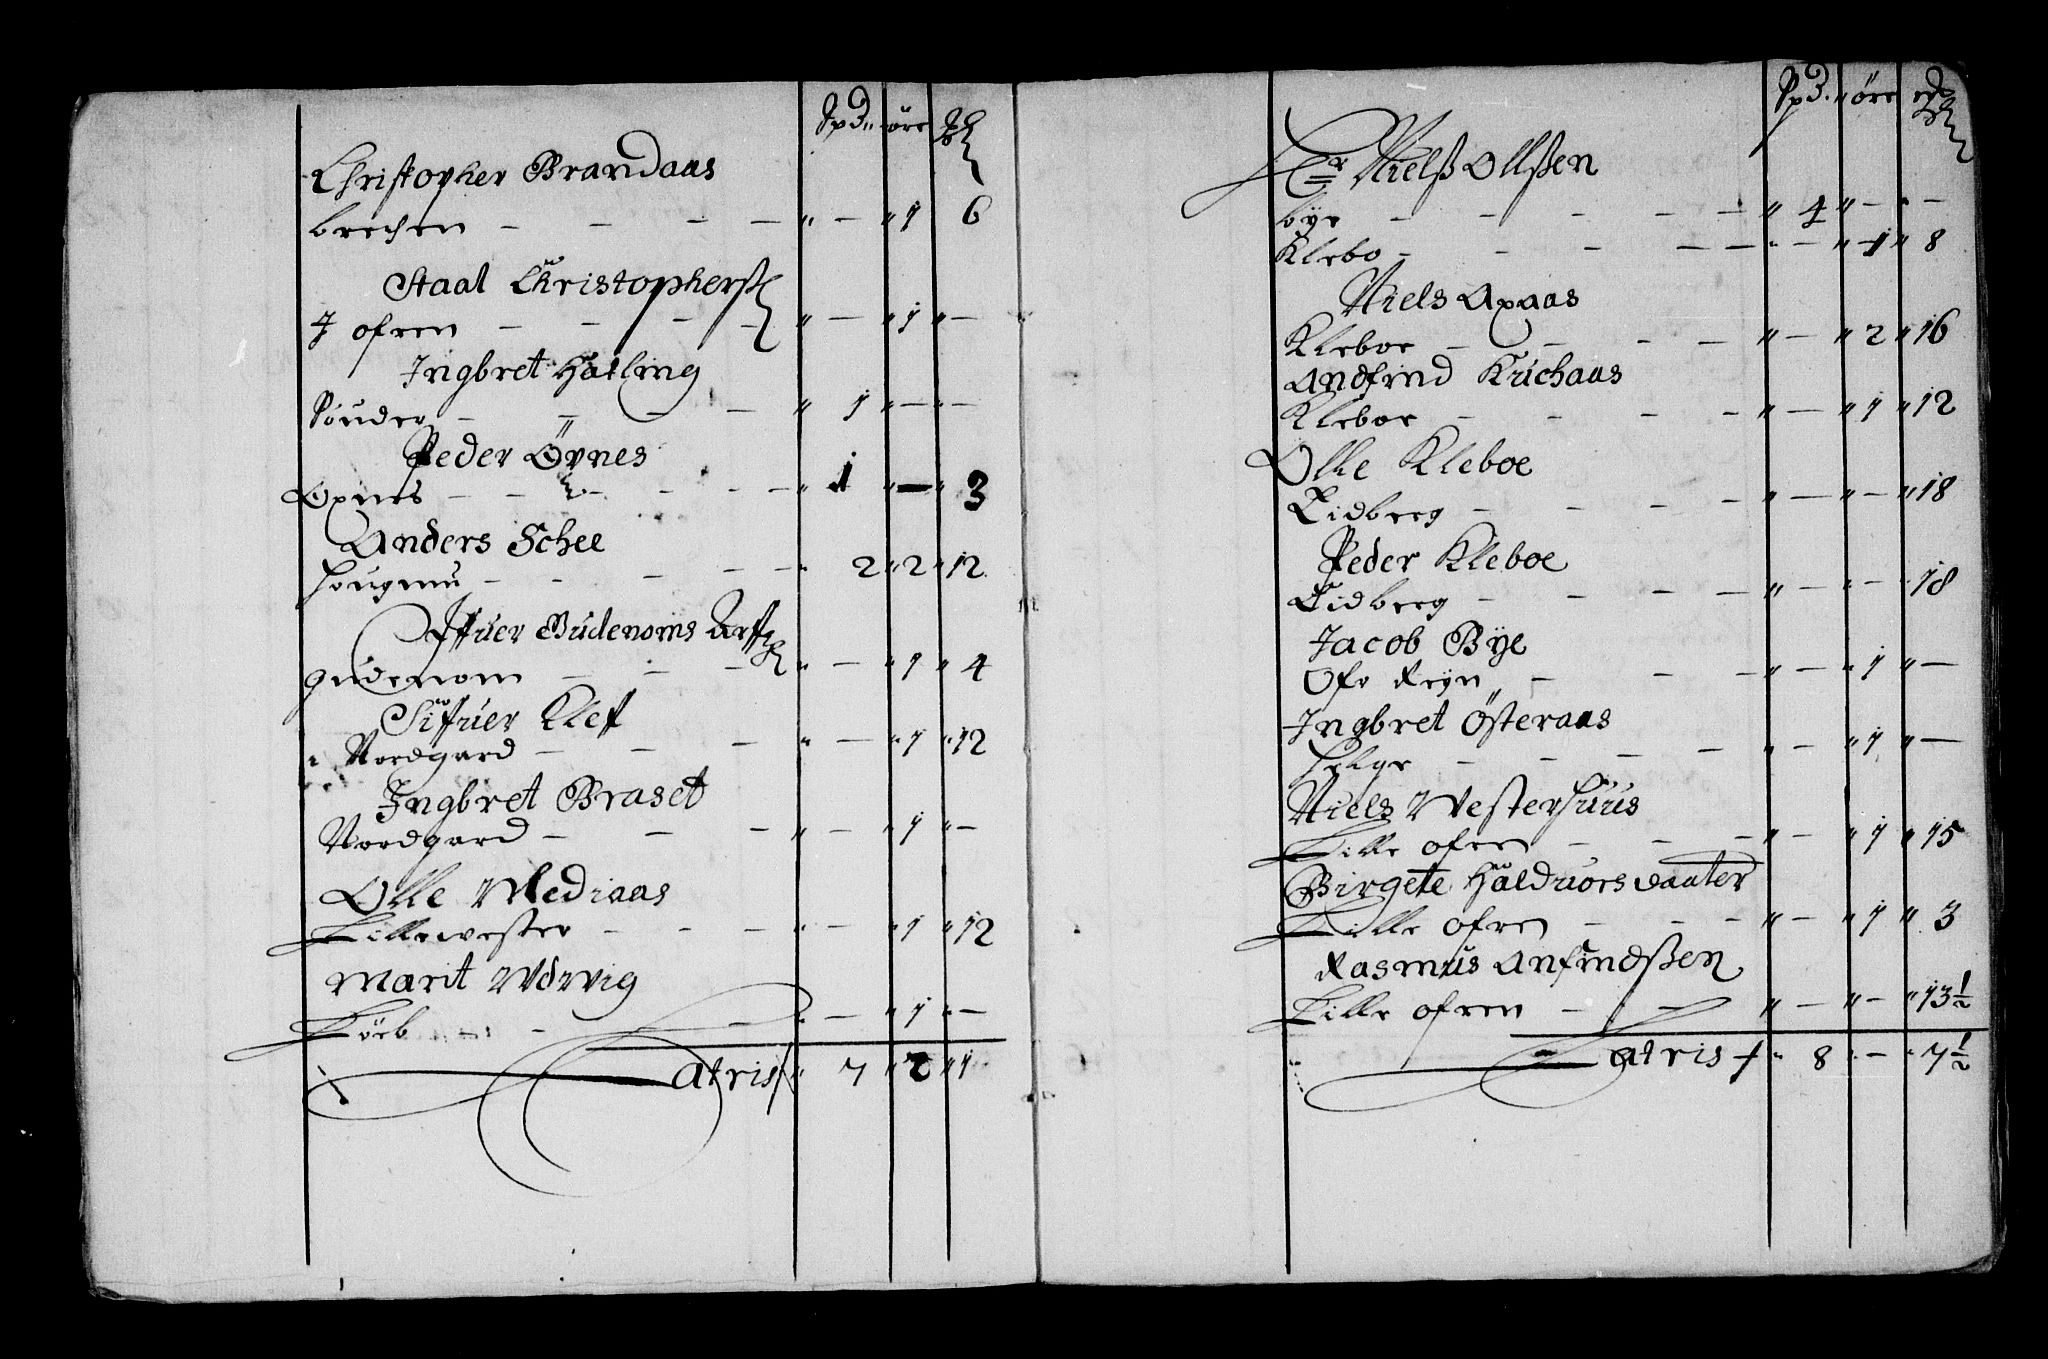 Spd. øre
Christopher Brandaas
brechen — — — — " — " 1 6
Staal Christophers
J ofren — — — — " — " 1 " —
Ingbret Halling
Sønder — — — — " 1 " — " —
Peder Öxnes
Oxnes — — — — — " 1 " — " 3
Anders Schee
Hougmu — — — — " 2 " 2 " 12
Iffuer Gudenoms Arff
gudenom — — — " — " 1 " 4
Siffuer Klef
Nordgard — — — " — " 1 " 12
Ingbret Braset
Nordgard — — — " — " 1 " —
Olle Mediaas
Lillewester — — — " — " 1 " 12
Marit Worvig
— — — " — " 1 " —
Latris 7 " 2 " 1
Spd. " øre
Hr Nielß Ollßen
bye — — — — — " 4 " — " —
Klebo — — — — — " — " 1 " 8
Niels Axaas
Kleboe — — — — " — " 2 " 16
Andfind Kirchaas
Kleboe — — — — " — " 1 " 12
Olle Kleboe
Eidberg — — — — " — " — " 18
Peder Kleboe
Eidberg — — — — " — " — " 18
Jacob Bÿe
Ofr Reyn — — — " — " 1 " —
Ingbret Østeraas
Helge — — — — " — " 1 " —
Niels Westerhuus
Lille ofren — — — " — " 1 " 15
Birgete Halduors daater
Lille ofren — — — " — " 1 " 3
Rasmus Anfindßen
Lille ofren — — " — " — " 13 1/2
Latris " 8 " — " 7 1/2